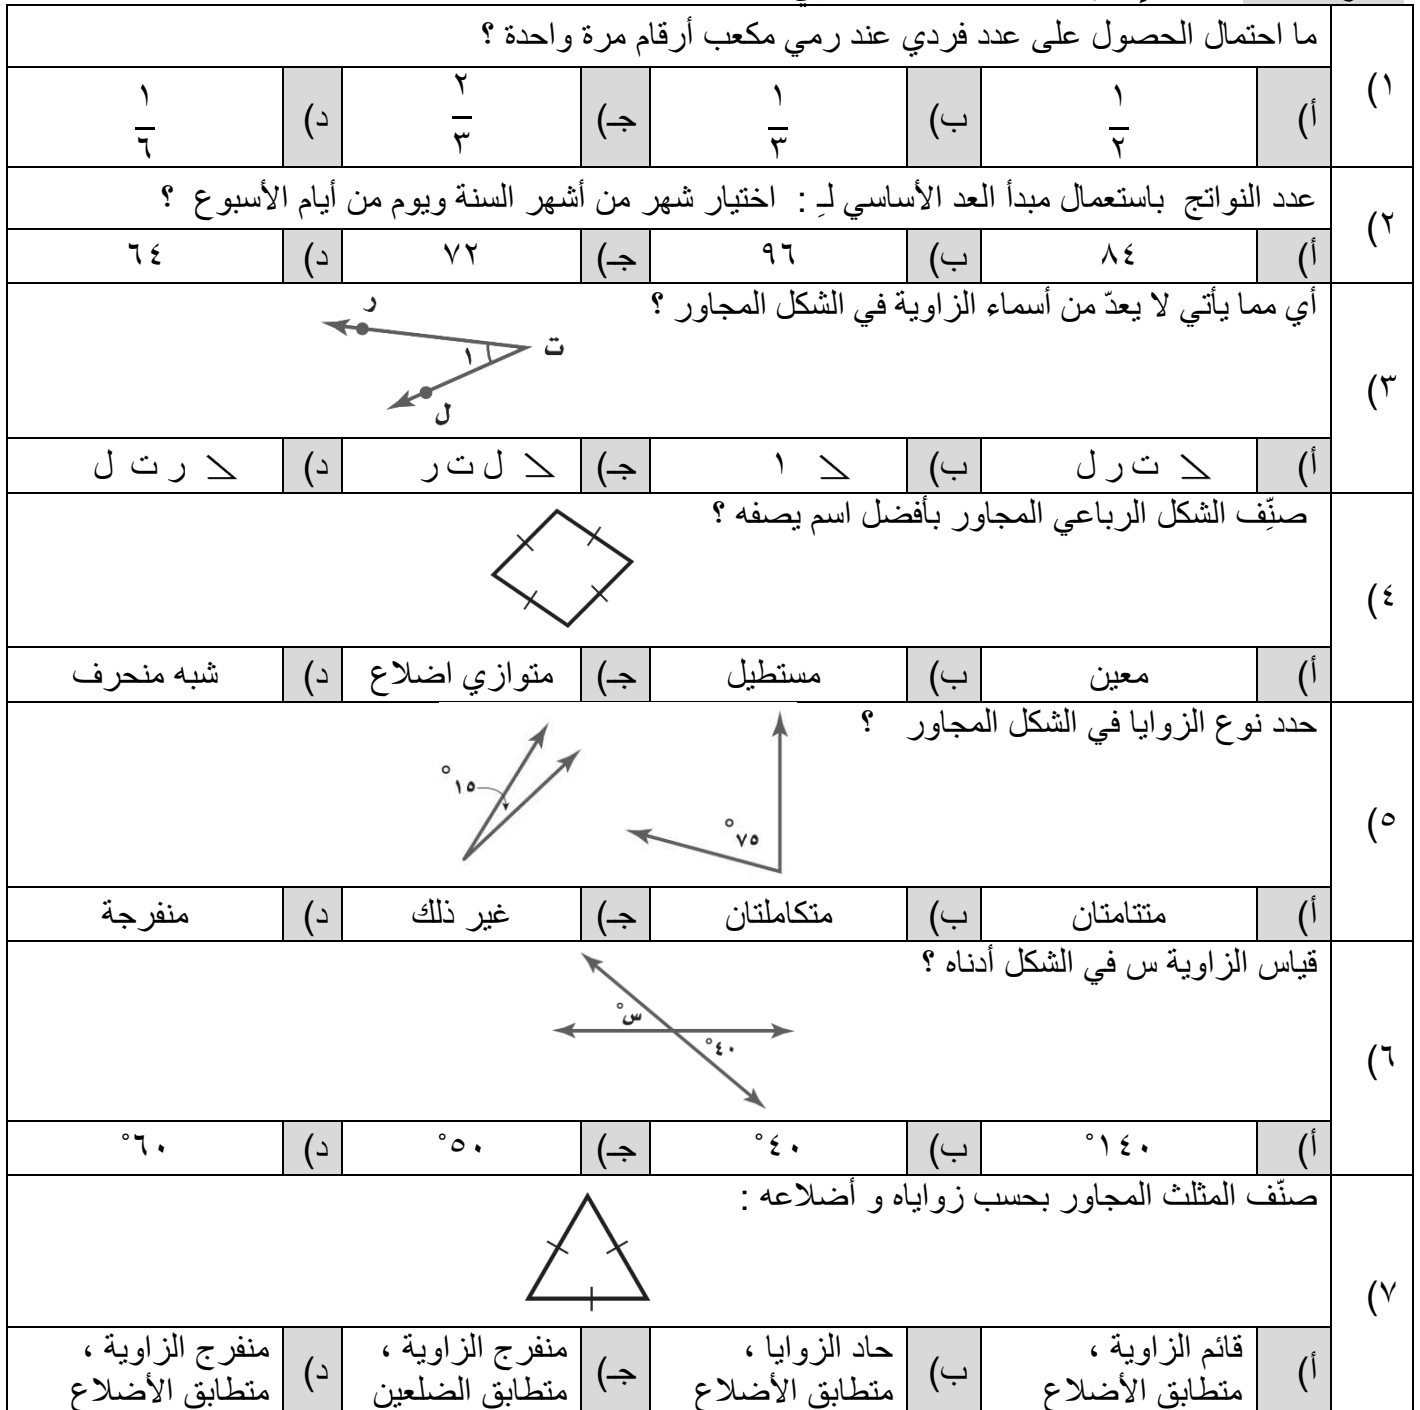 ١)
ما احتمال الحصول على عدد فردي عند رمي مكعب أرقام مرة واحدة ؟
أ) ١/٢ ب) ١/٣ جـ) ٢/٣ د) ١/٦
٢)
عدد النواتج باستعمال مبدأ العد الأساسي لـِ : اختيار شهر من أشهر السنة ويوم من أيام الأسبوع ؟
أ) ٨٤ ب) ٩٦ جـ) ٧٢ د) ٦٤
٣)
أي مما يأتي لا يعدّ من أسماء الزاوية في الشكل المجاور ؟
ر
ت
١
ل
أ) ∠ ت ر ل ب) ∠ ١ جـ) ∠ ل ت ر د) ∠ ر ت ل
٤)
صنِّف الشكل الرباعي المجاور بأفضل اسم يصفه ؟
أ) معين ب) مستطيل جـ) متوازي اضلاع د) شبه منحرف
٥)
حدد نوع الزوايا في الشكل المجاور ؟
٧٥°
١٥°
أ) متتامتان ب) متكاملتان جـ) غير ذلك د) منفرجة
٦)
قياس الزاوية س في الشكل أدناه ؟
س°
٤٠°
أ) ١٤٠° ب) ٤٠° جـ) ٥٠° د) ٦٠°
٧)
صنّف المثلث المجاور بحسب زواياه و أضلاعه :
أ) قائم الزاوية ،
متطابق الأضلاع
ب) حاد الزوايا ،
متطابق الأضلاع
جـ) منفرج الزاوية ،
متطابق الضلعين
د) منفرج الزاوية ،
متطابق الأضلاع